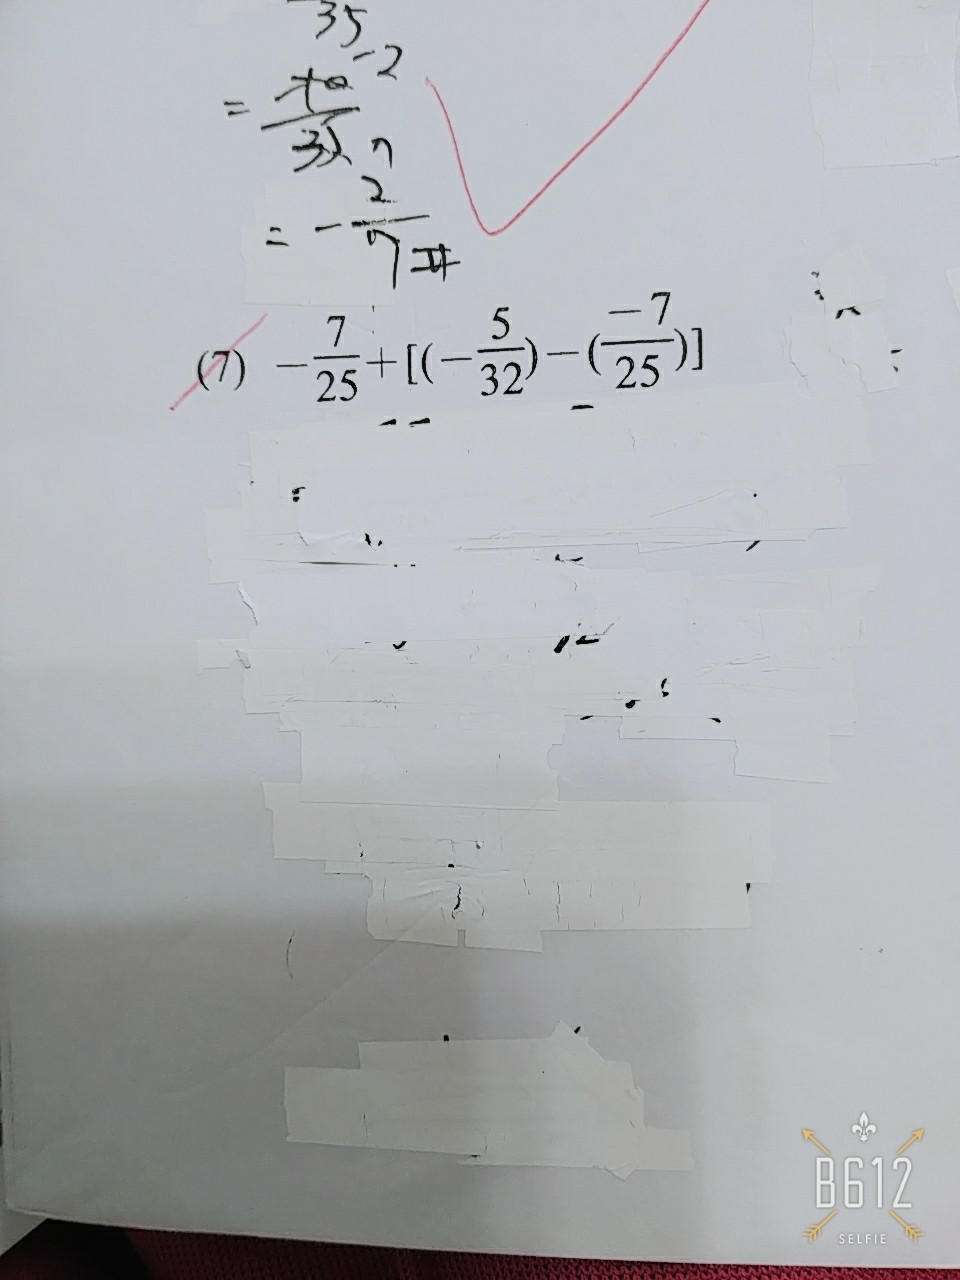 35
-2
= -10/35 7
= -2/7 #
(7) -7/25+[(-5/32)-(-7/25)]
B612
SELFIE